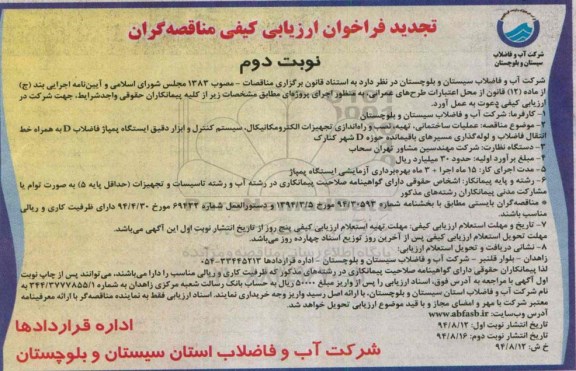 تجدید فراخوان ارزیابی کیفی مناقصه‌گران
نوبت دوم
شرکت آب و فاضلاب
سیستان و بلوچستان
شرکت آب و فاضلاب سیستان و بلوچستان در نظر دارد به استناد قانون برگزاری مناقصات - مصوب ۱۳۸۳ مجلس شورای اسلامی و آیین‌نامه اجرایی بند (ج)
از ماده (۱۲) قانون از محل اعتبارات طرح‌های عمرانی، به منظور اجرای پروژه‌ای مطابق مشخصات زیر از کلیه پیمانکاران حقوقی واجدشرایط، جهت شرکت در
ارزیابی کیفی دعوت به عمل آورد.
۱- کارفرما: شرکت آب و فاضلاب سیستان و بلوچستان
۲- موضوع مناقصه: عملیات ساختمانی، تهیه، نصب و راه‌اندازی تجهیزات الکترومکانیکال، سیستم کنترل و ابزار دقیق ایستگاه پمپاژ فاضلاب D به همراه خط
انتقال فاضلاب و لوله‌گذاری مسیرهای باقیمانده حوزه D شهر کنارک
۳- دستگاه نظارت: شرکت مهندسین مشاور تهران سحاب
۴- مبلغ برآورد اولیه: حدود ۳۰ میلیارد ریال
۵- مدت اجرای کار: ۱۵ ماه اجرا + ۳ ماه بهره‌برداری آزمایشی ایستگاه پمپاژ
۶- رشته و پایه پیمانکار: اشخاص حقوقی دارای گواهینامه صلاحیت پیمانکاری در رشته آب و رشته تاسیسات و تجهیزات (حداقل پایه ۵) به صورت توام یا
مشارکت مدنی پیمانکاران رشته‌های مذکور
* مناقصه‌گران بایستی مطابق با بخشنامه شماره ۹۴/۳۰۵۹۳ مورخ ۱۳۹۴/۳/۵ و دستورالعمل شماره ۶۹۴۲۴ مورخ ۹۴/۴/۳۰ دارای ظرفیت کاری و ریالی
مناسب باشند.
۷- تاریخ و مهلت استعلام ارزیابی کیفی: مهلت تهیه استعلام ارزیابی کیفی پنج روز از تاریخ انتشار نوبت اول این آگهی می‌باشد.
مهلت تحویل استعلام ارزیابی کیفی پس از آخرین روز توزیع اسناد چهارده روز می‌باشد.
۸- نشانی دریافت و تحویل استعلام ارزیابی:
زاهدان - بلوار قلنبر - شرکت آب و فاضلاب سیستان و بلوچستان - اداره قراردادها ۳۳۴۴۵۲۱۳-۰۵۴
لذا پیمانکاران حقوقی دارای گواهینامه صلاحیت پیمانکاری در رشته‌های مذکور که ظرفیت کاری و ریالی مناسب را دارا می‌باشند، می‌توانند پس از چاپ نوبت
اول آگهی با مراجعه به آدرس فوق، اسناد ارزیابی را پس از واریز مبلغ ۵۰۰۰۰۰ ریال به حساب بانک رسالت شعبه مرکزی زاهدان به شماره ۳۴۴/۳۷۷۷۸۵۵/۱ به
نام شرکت آب و فاضلاب استان سیستان و بلوچستان، با ارائه اصل رسید واریز وجه خریداری نمایند. اسناد ارزیابی فقط به نماینده مناقصه‌گر با ارائه معرفینامه
معتبر شرکت با مهر و امضای مجاز و با قید موضوع ارزیابی تحویل خواهد شد.
آدرس وب‌سایت: www.abfasb.ir
تاریخ انتشار نوبت اول: ۹۴/۸/۱۲
تاریخ انتشار نوبت دوم: ۹۴/۸/۱۶
خ ش: ۹۴/۸/۱۲
اداره قراردادها
شرکت آب و فاضلاب استان سیستان و بلوچستان